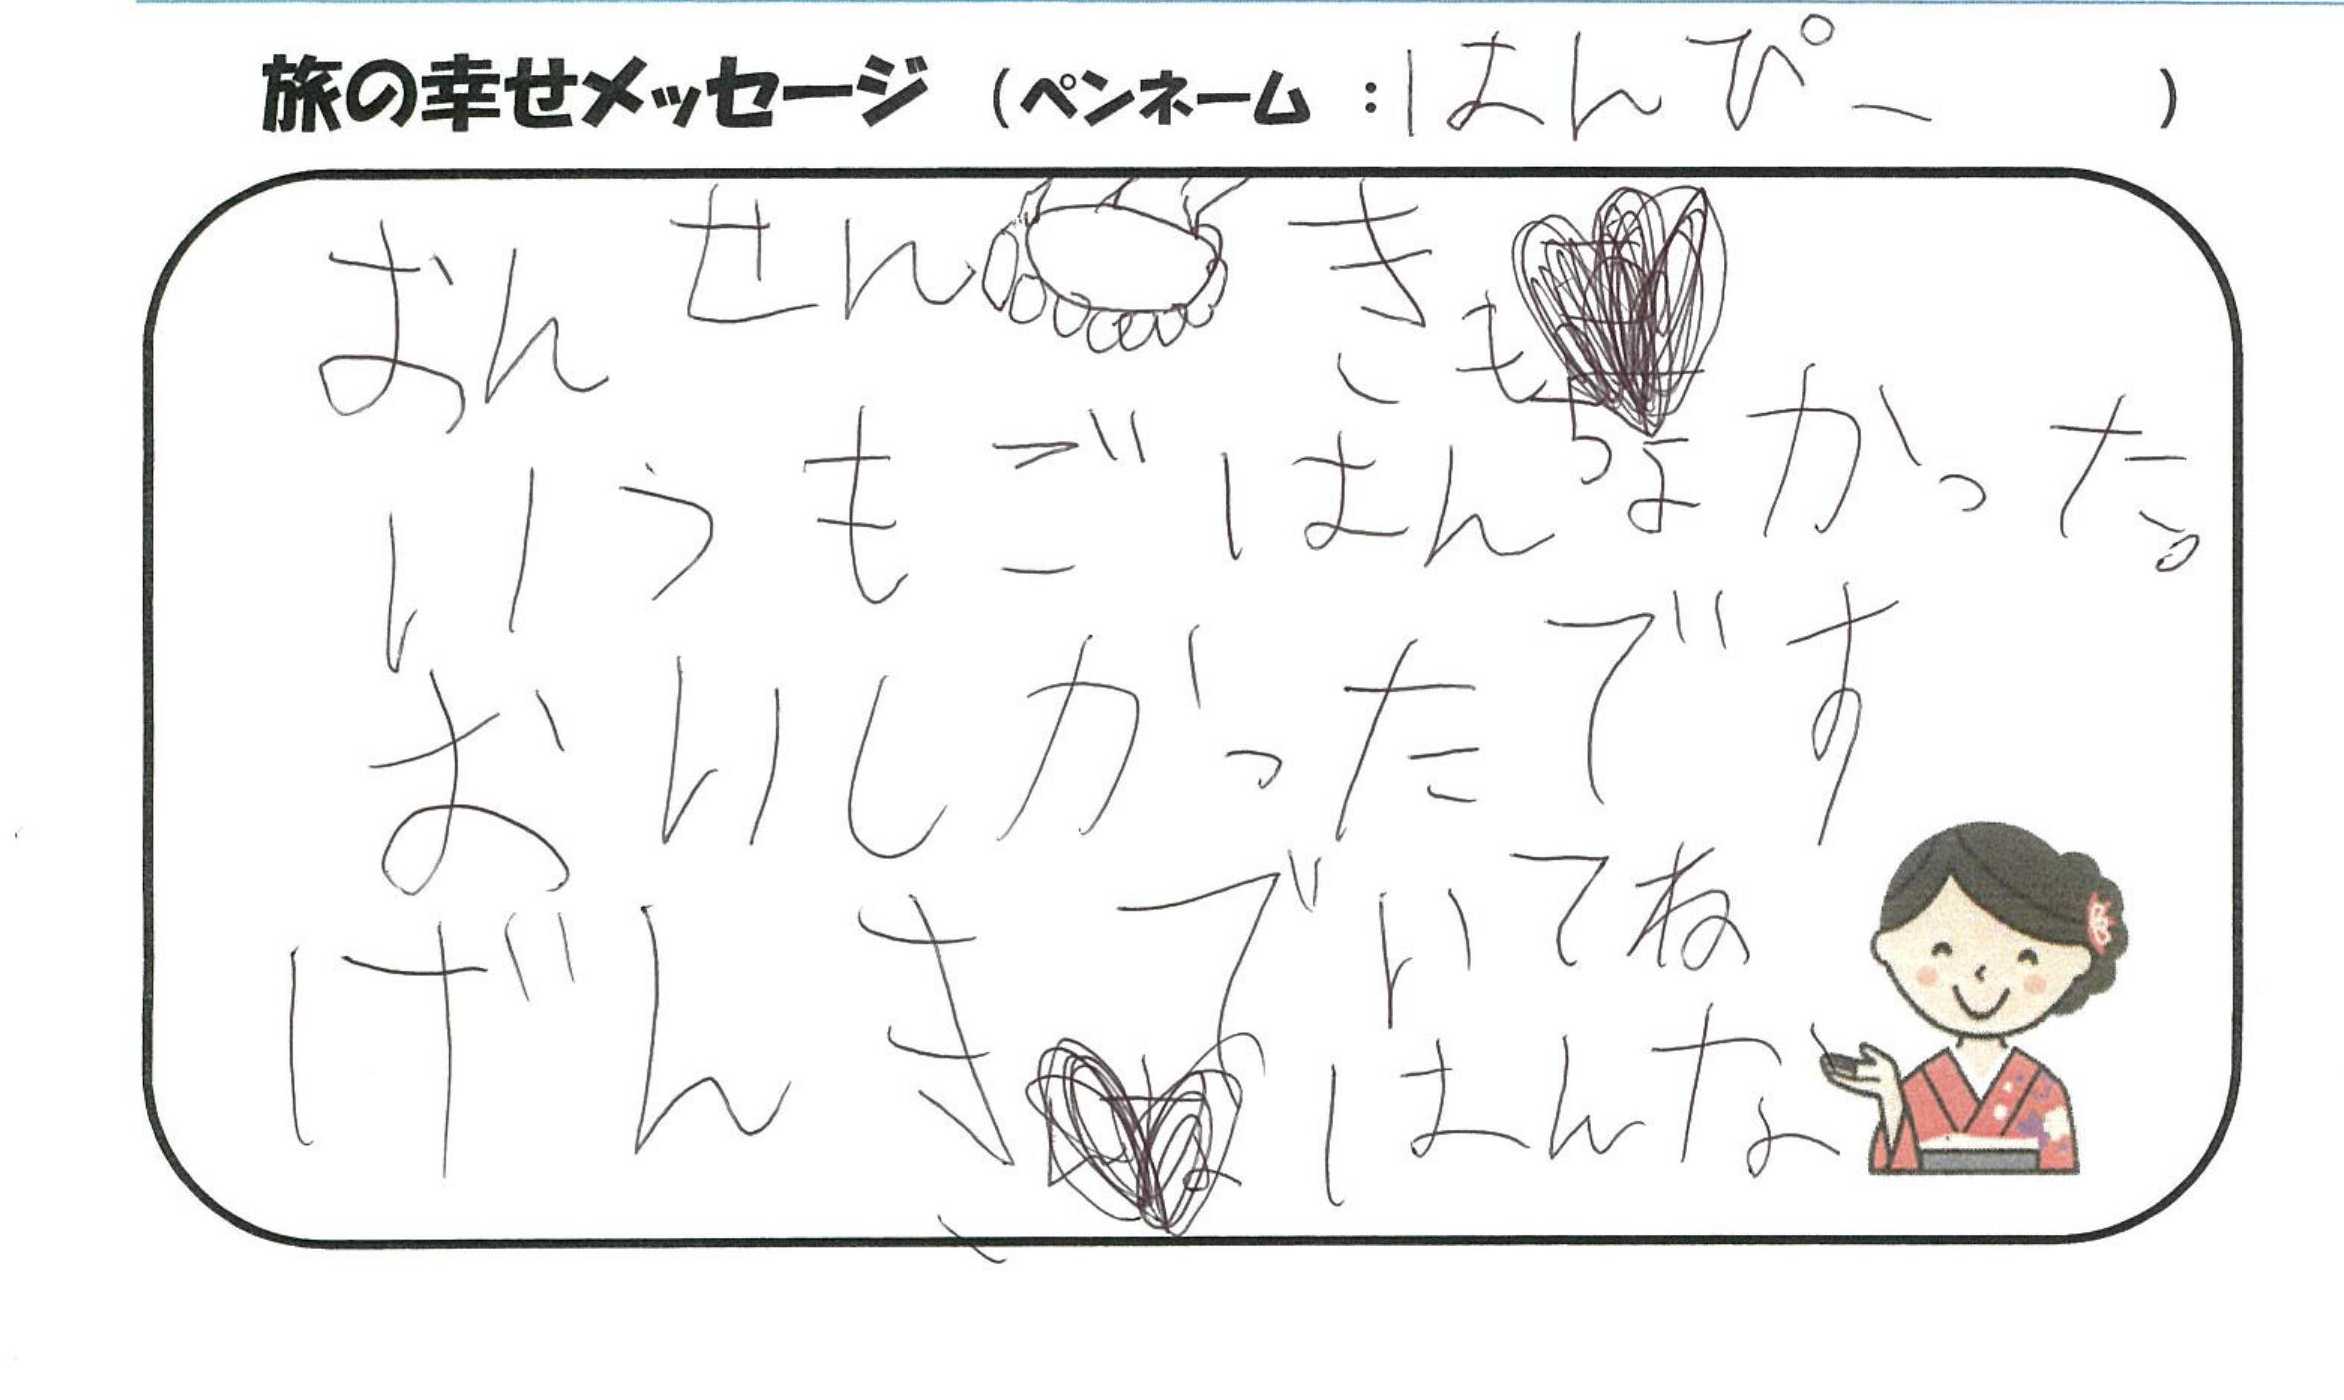 旅の幸せメッセージ (ペンネーム : はんぴー )
おんせん きもちよかった。
いつもごはん
おいしかったです
げんきでいてね
はんな